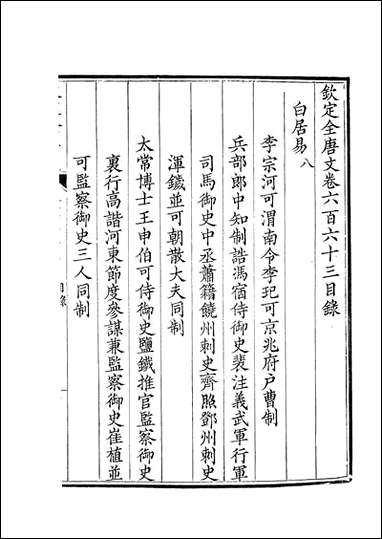 欽定全唐文卷六百六十三目錄
白居易八
李宗河可渭南令李玘可京兆府户曹制
兵部郎中知制誥馮宿侍御史裴注義武軍行軍
司馬御史中丞蕭籍饒州刺史齊照鄧州刺史
渾鐬並可朝散大夫同制
太常博士王申伯可侍御史鹽鐵推官監察御史
裏行高諧河東節度參謀兼監察御史崔植並
可監察御史三人同制
目錄